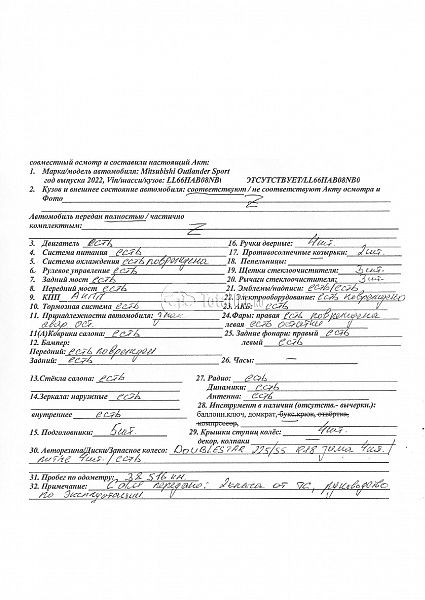 совместный осмотр и составили настоящий Акт:
1. Марка/модель автомобиля: Mitsubishi Outlander Sport
год выпуска 2022, Vin/шасси/кузов: LL66HAB08NB0 ОТСУТСТВУЕТ/LL66HAB08NB0
2. Кузов и внешнее состояние автомобиля: соответствуют / не соответствуют Акту осмотра и
Фото
Автомобиль передан полностью / частично
комплектным:
3. Двигатель есть
4. Система питания есть
5. Система охлаждения есть повреждена
6. Рулевое управление есть
7. Задний мост есть
8. Передний мост есть
9. КПП АКПП
10. Тормозная система есть
11. Принадлежности автомобиля: знак
авар. ост.
11(А)Коврики салона: есть
12. Бампер:
Передний: есть поврежден
Задний: есть
16. Ручки дверные: 4 шт.
17. Противосолнечные козырьки: 2 шт.
18. Пепельницы: —
19. Щетки стеклоочистителя: 3 шт.
20. Рычаги стеклоочистителя: 3 шт.
21. Эмблемы/надписи: есть/есть
22. Электрооборудование: есть повреждено
23. АКБ: есть
24. Фары: правая есть повреждена
левая есть
25. Задние фонари: правый есть
левый есть
26. Часы: —
13.Стёкла салона: есть
14.Зеркала: наружные есть
внутреннее есть
15. Подголовники: 5 шт.
27. Радио: есть
Динамики: есть
Антенна: есть
28. Инструмент в наличии (отсутств.- вычеркн.):
баллонн.ключ, домкрат, букс.крюк, отвёртка,
компрессор,
29. Крышки ступиц колёс: 4 шт.
декор. колпаки
30. Авторезина/Диски/Запасное колесо: DOUBLESTAR 225/55 R18 зима 4 шт. /
литые 4 шт. / есть
31. Пробег по одометру: 38 516 км
32. Примечание: С а/м передано: 2 ключа от ТС, руководство
по эксплуатации.